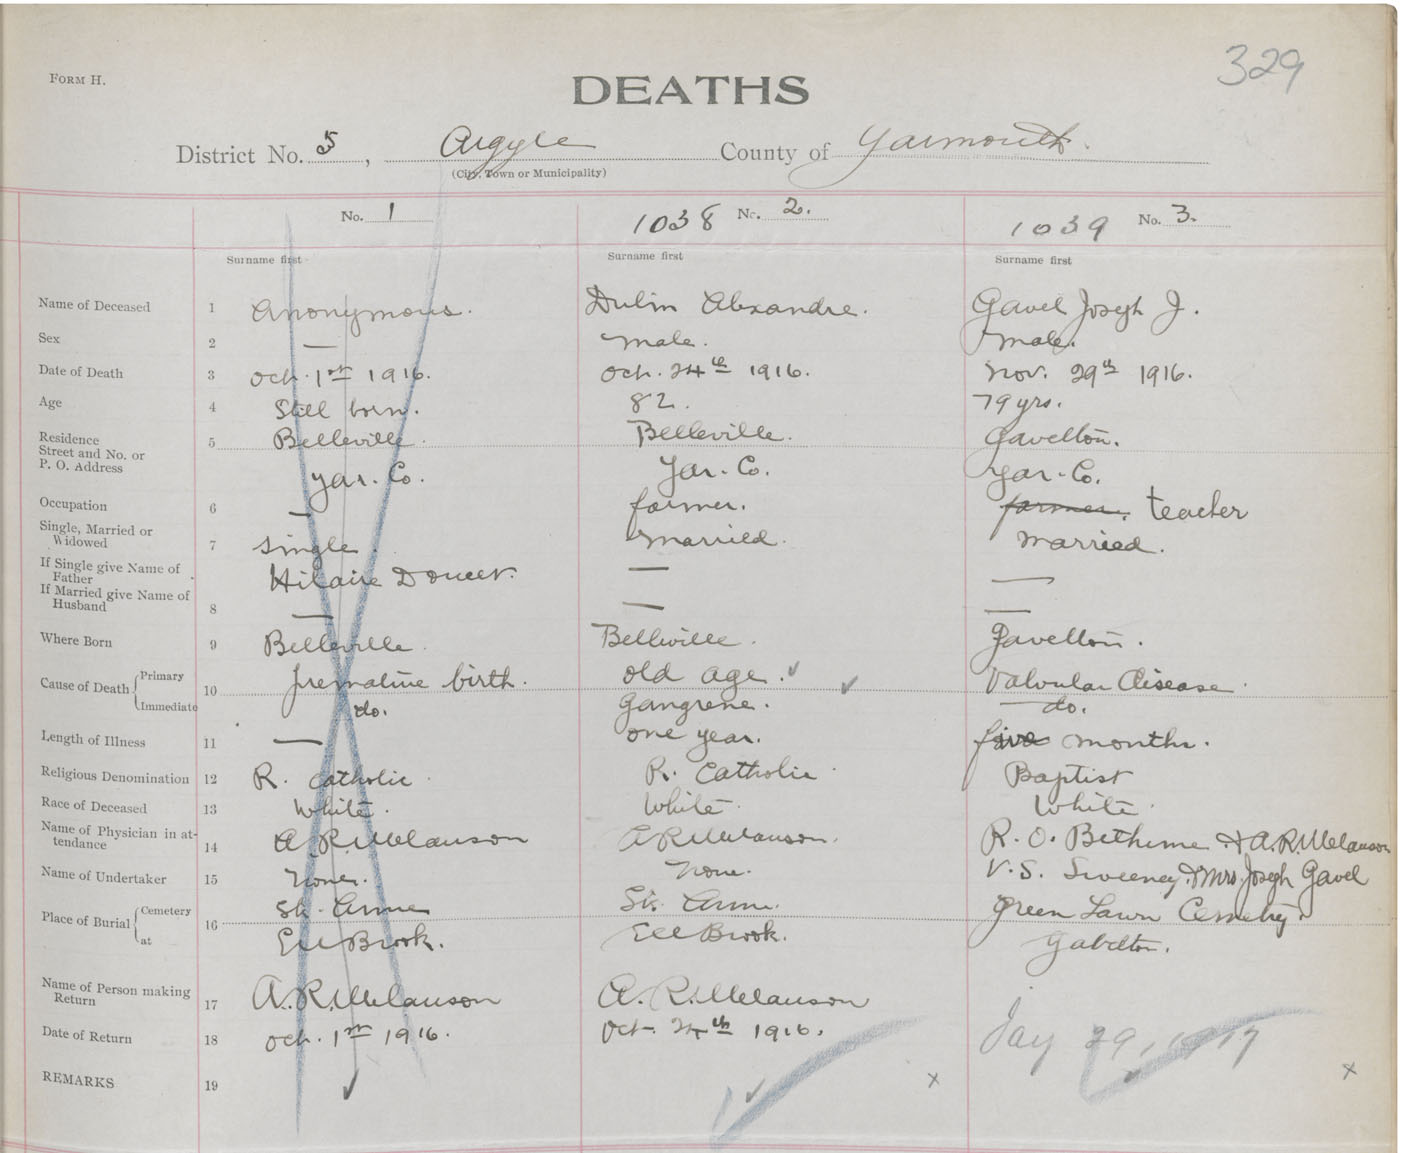 329
FORM H.
DEATHS
District No. 5, Argyle County of Yarmouth
(City, Town or Municipality)
No. 1 1038 No. 2. 1039 No. 3.
Surname first Surname first Surname first
Name of Deceased 1 Anonymous. Dulin Alexandre. Gavel Joseph J.
Sex 2 — male. male.
Date of Death 3 Oct. 1st 1916. Oct. 24th 1916. Nov. 29th 1916.
Age 4 Still born. 82. 79 yrs.
Residence Street and No. or P. O. Address 5 Belleville. Belleville. Gavelton.
Yar. Co. Yar. Co. Yar. Co.
Occupation 6 — farmer. farmer. teacher
Single, Married or Widowed 7 Single. Married. Married.
If Single give Name of Father Hilaire Doucet. — —
If Married give Name of Husband 8 — — —
Where Born 9 Belleville. Belleville. Gavelton.
Cause of Death Primary 10 premature birth. old age. Valvular Disease.
Immediate do. gangrene. do.
Length of Illness 11 — one year. five months.
Religious Denomination 12 R. Catholic R. Catholic Baptist
Race of Deceased 13 White. White. White.
Name of Physician in attendance 14 A. R. Melanson A R Melanson. R. O. Bethune & A. R. Melanson
Name of Undertaker 15 None. None. V. S. Sweeney & Mrs. Joseph Gavel
Place of Burial Cemetery 16 St. Anne St. Anne. Green Lawn Cemetry.
at Eel Brook. Eel Brook. Gavelton.
Name of Person making Return 17 A. R. Melanson A. R. Melanson
Date of Return 18 Oct. 1st 1916. Oct. 24th 1916. Jay 29, 1917
REMARKS 19 x x